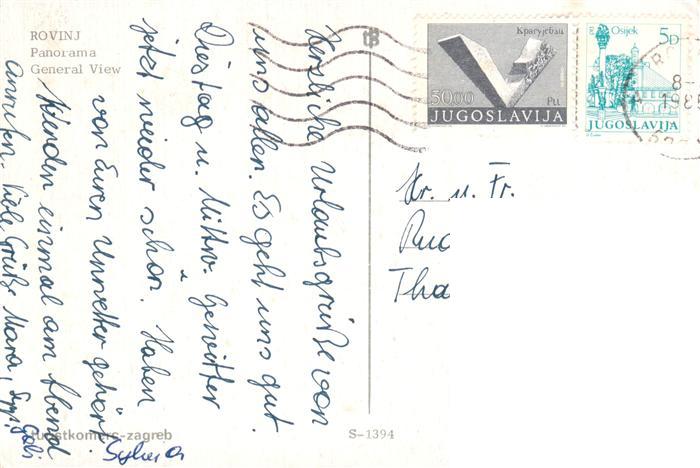 ROVINJ
Panorama
General View
Крагујевац
50.00
Pтт
JUGOSLAVIJA
Osijek
5D
JUGOSLAVIJA
8
198
Herzliche Urlaubsgrüße von
uns allen. Es geht uns gut.
Dienstag u. Mittw. Gewitter
jetzt wieder schön. Haben
von Euren Unwetter gehört
Würden einmal am Abend
anrufen. Viele Grüße Mara,
Gabi
Sylvia
Hr. u. Fr.
Ruc
Tha
turistkomerc-zagreb
S-1394